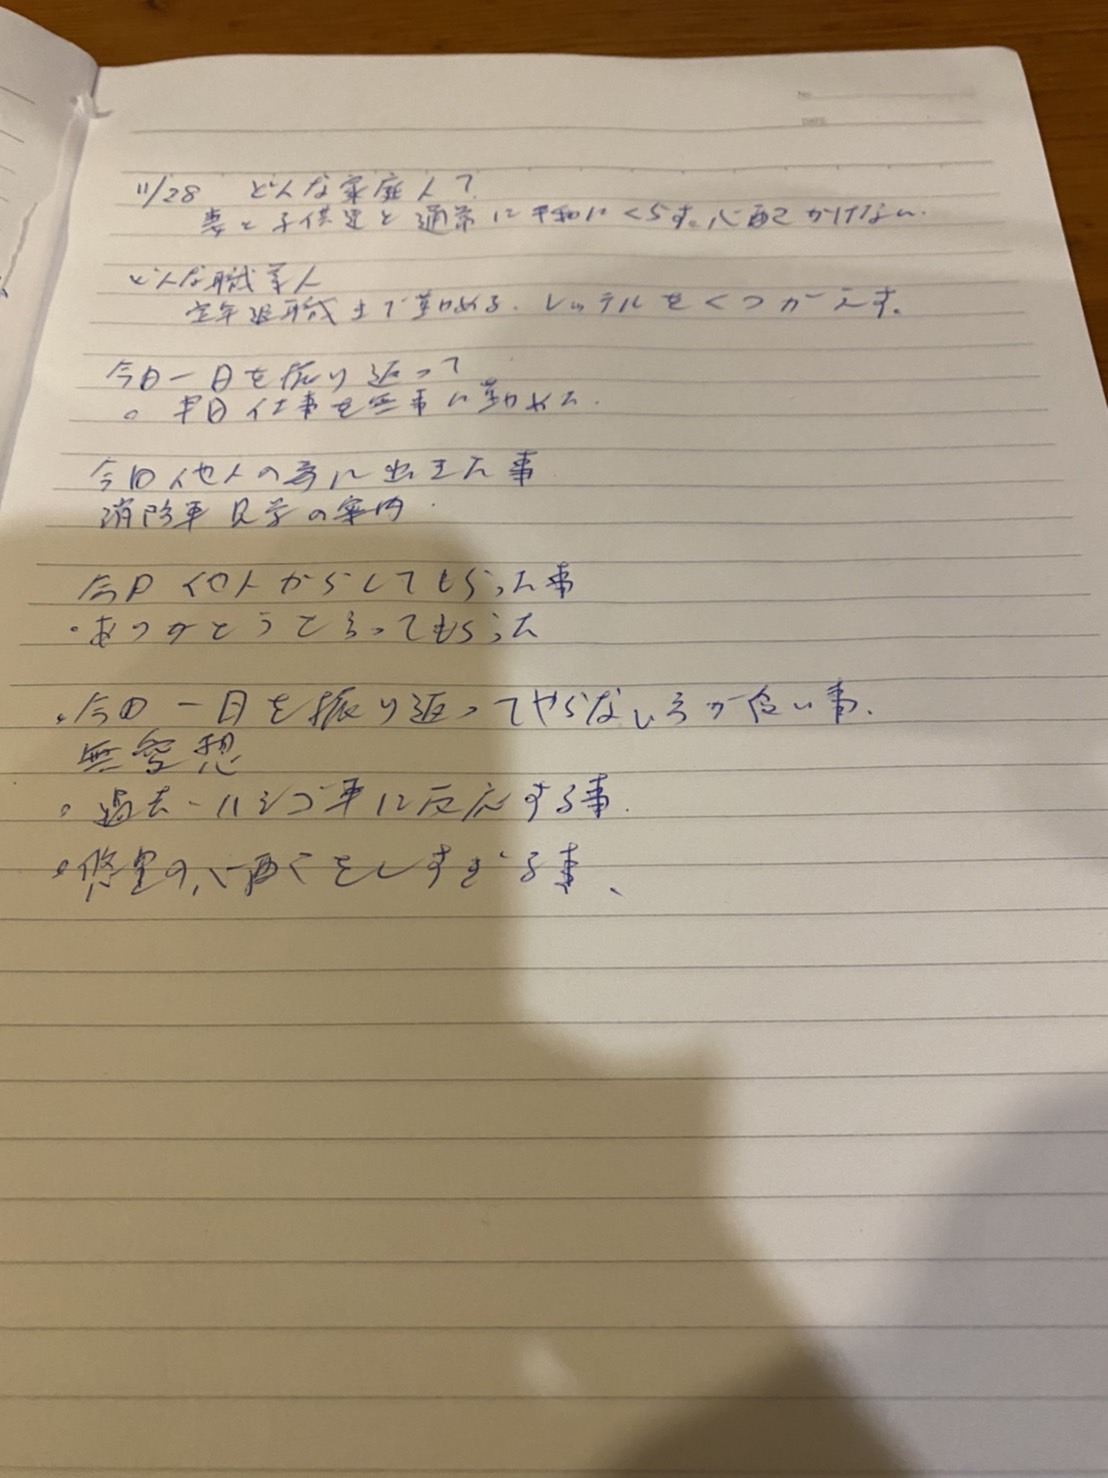 No.
DATE
11/28 どんな家庭人で
妻と子供達と通常に平和にくらす。心配をかけない.
どんな職業人
定年退職まで勤める. レッテルをくつがえす。
今日一日を振り返って
。半日仕事を無事に勤めた.
今日他人の為に出きた事
消防車見学の案内.
今日他人からしてもらった事
・ありがとうと言ってもらった
・今日一日を振り返ってやらない方が良い事.
無空想
。過去・ハシゴ車に反応する事.
。悠里の心配をしすぎる事、